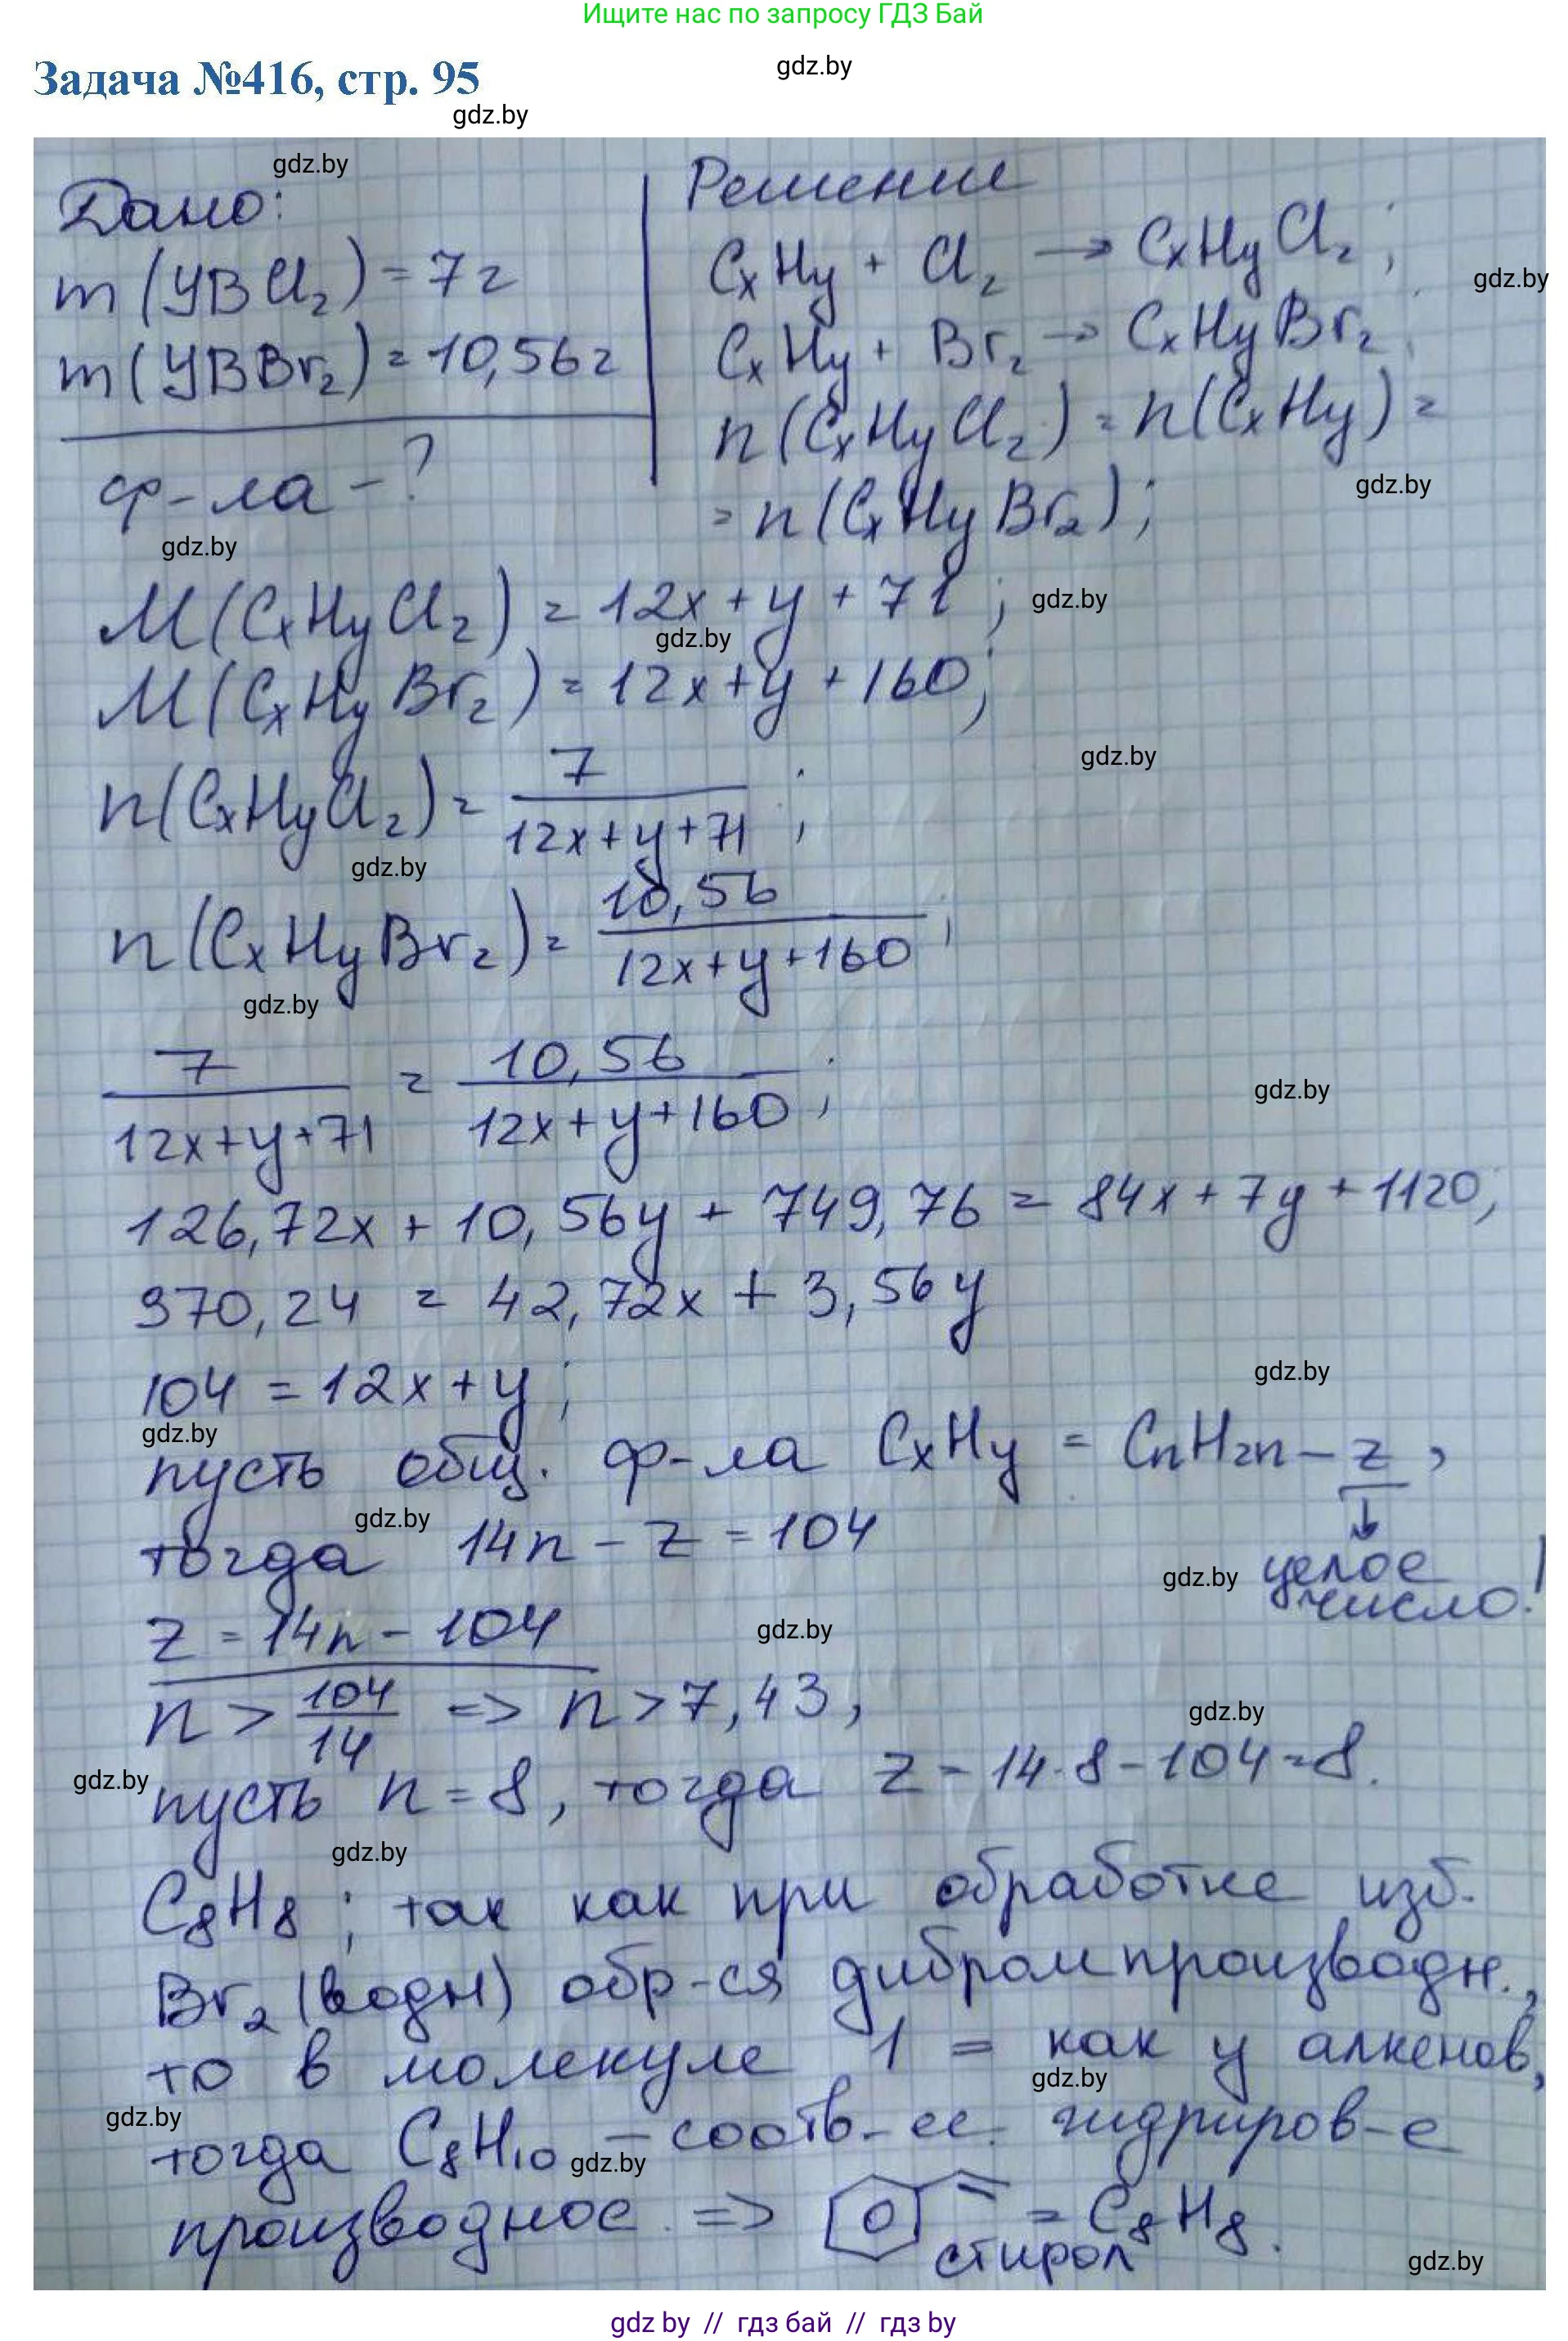 Ищите нас по запросу ГДЗ Бай
Задача №416, стр. 95
gdz.by
gdz.by
gdz.by
Дано:
m(УВCl₂) = 7г
m(УВBr₂) = 10,56г
ф-ла - ?
gdz.by
Решение
CxHy + Cl₂ → CxHyCl₂;
gdz.by
CxHy + Br₂ → CxHyBr₂
n(CxHyCl₂) = n(CxHy) =
gdz.by
= n(CxHyBr₂);
M(CxHyCl₂) = 12x + y + 71;
gdz.by
gdz.by
M(CxHyBr₂) = 12x + y + 160;
gdz.by
n(CxHyCl₂) = 7 / (12x + y + 71);
gdz.by
n(CxHyBr₂) = 10,56 / (12x + y + 160);
gdz.by
7 / (12x + y + 71) = 10,56 / (12x + y + 160);
gdz.by
126,72x + 10,56y + 749,76 = 84x + 7y + 1120;
370,24 = 42,72x + 3,56y
104 = 12x + y;
gdz.by
gdz.by
пусть общ. ф-ла CxHy = CnH2n-z,
gdz.by
тогда 14n - z = 104
gdz.by
целое число!
z = 14n - 104
gdz.by
n > 104/14 => n > 7,43,
gdz.by
gdz.by
пусть n = 8, тогда z = 14·8 - 104 = 8.
gdz.by
C₈H₈; так как при обработке изб.
Br₂ (водн) обр-ся дибромпроизводн.,
то в молекуле 1 = как у алкенов,
gdz.by
gdz.by
тогда C₈H₁₀ - соотв-ее гидриров-е
gdz.by
производное => = C₈H₈.
стирол
gdz.by
gdz by // гдз бай // гдз by